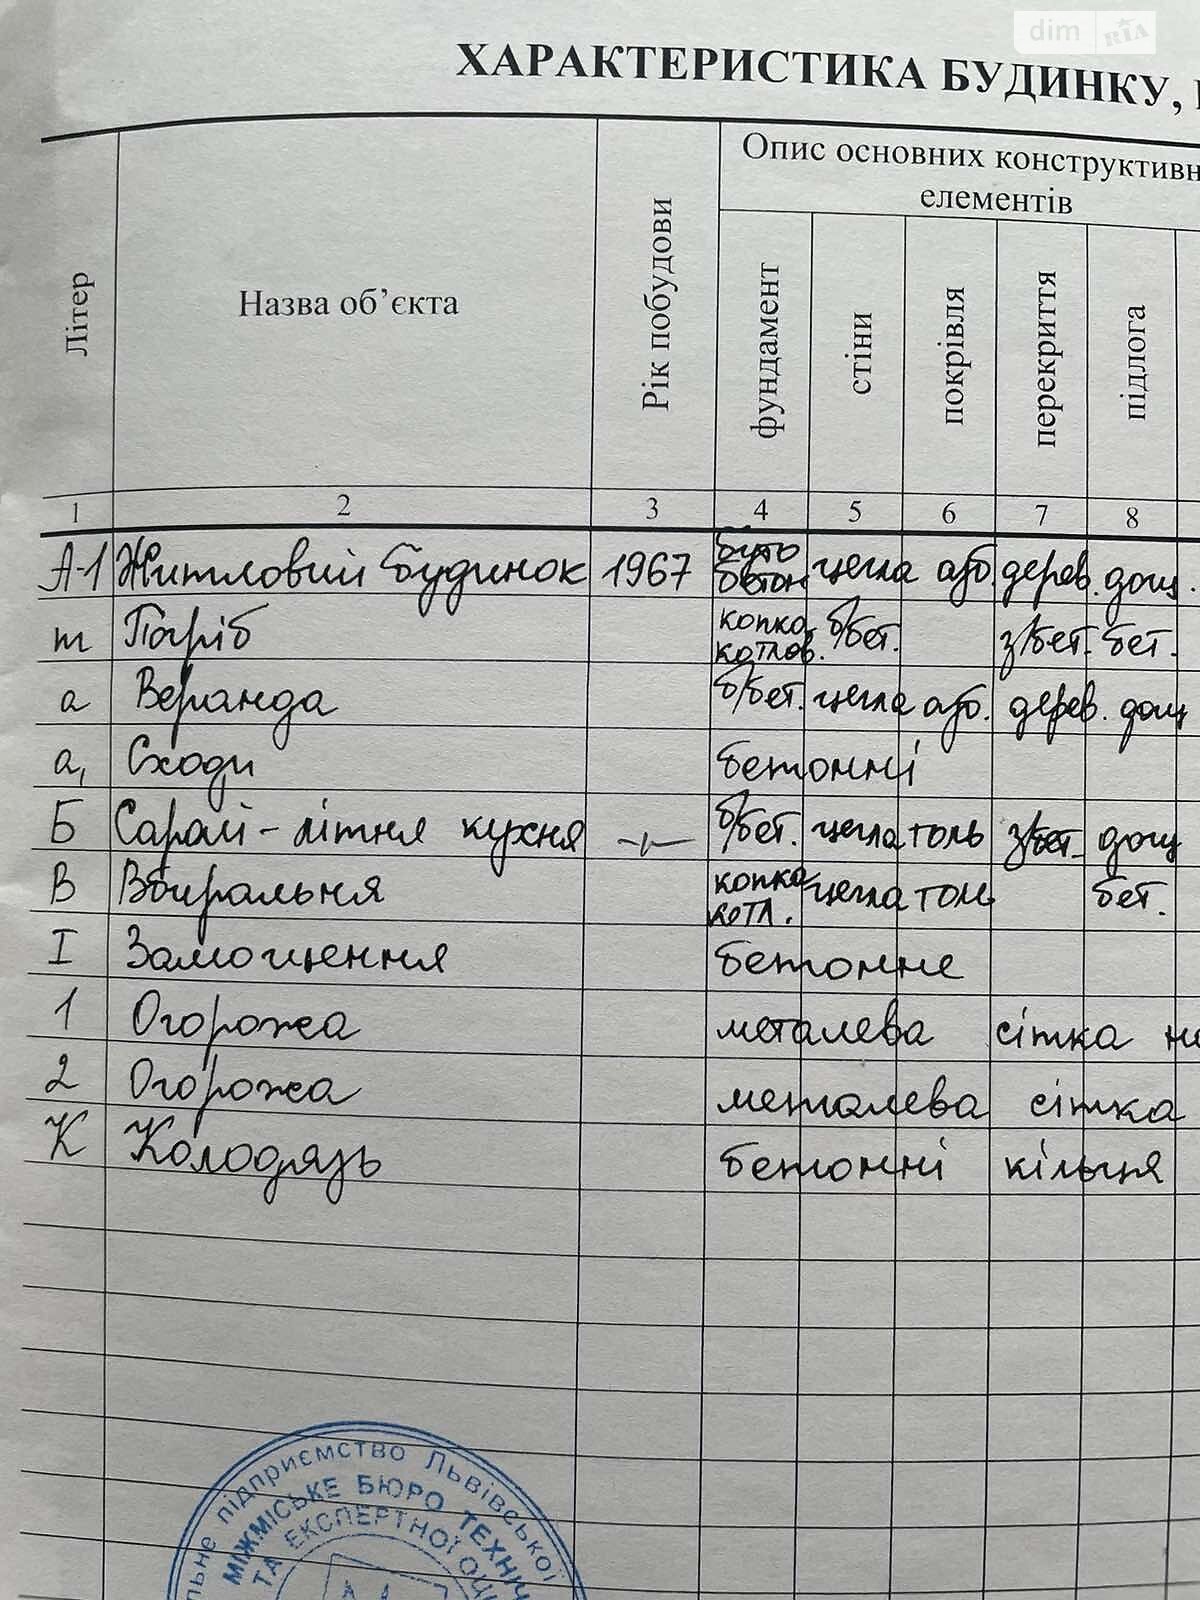 dim RIA
ХАРАКТЕРИСТИКА БУДИНКУ,
Літер Назва об’єкта Рік побудови Опис основних конструктивн
елементів
фундамент стіни покрівля перекриття підлога
1 2 3 4 5 6 7 8
А-1 Житловий будинок 1967 буто бетон цегла азб. дерев. дощ.
т Погріб копка котлов. б/бет. з/бет. бет.
а Веранда б/бет. цегла азб. дерев. дощ
а, Сходи бетонні
Б Сарай - літня кухня -"- б/бет. цегла толь з/бет. дощ
В Вбиральня копка котл. цегла толь бет.
I Замощення бетонне
1 Огорожа металева сітка на
2 Огорожа металева сітка
К Колодязь бетонні кільця
льне підприємство Львівської
МІЖМІСЬКЕ БЮРО ТЕХНІЧ
ТА ЕКСПЕРТНОЇ ОЦІ